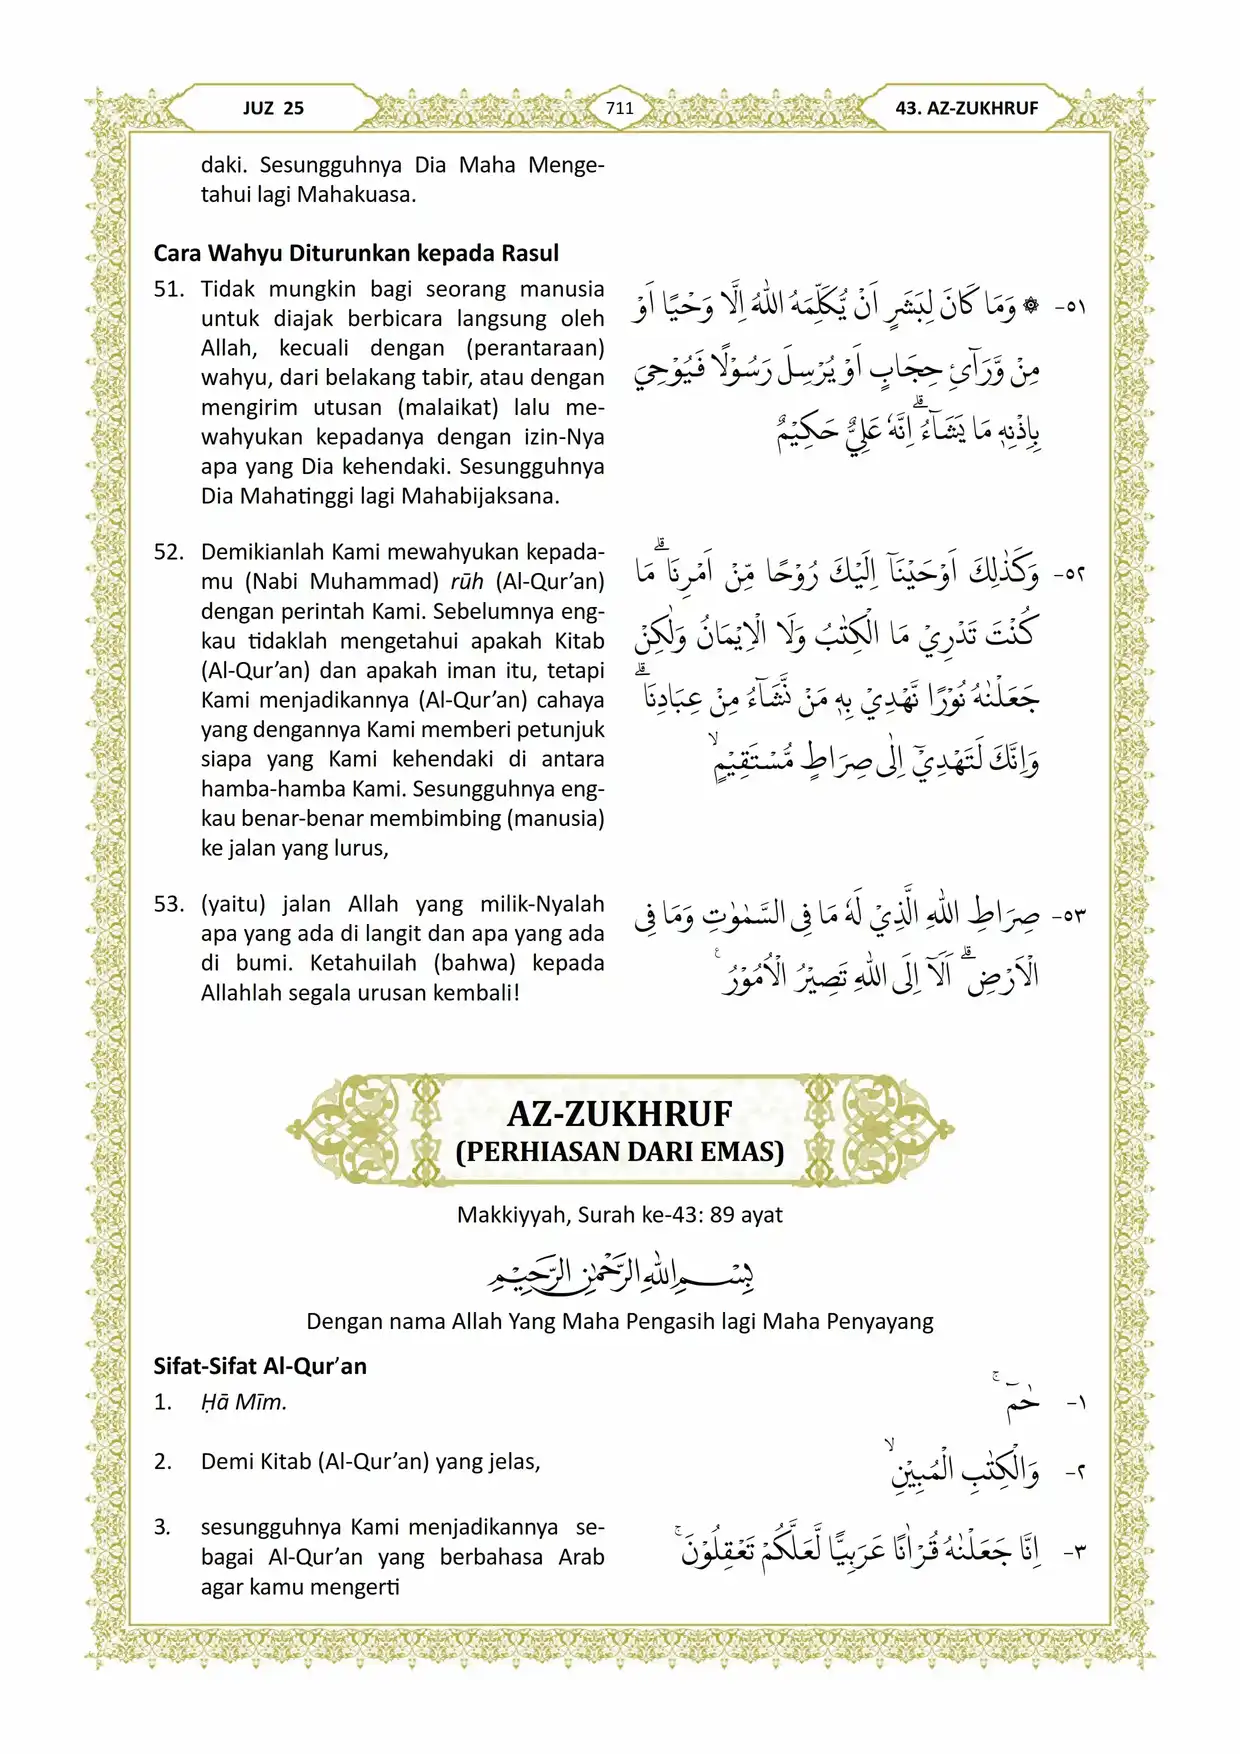 JUZ 25
711
43. AZ-ZUKHRUF
daki. Sesungguhnya Dia Maha Menge-
tahui lagi Mahakuasa.
Cara Wahyu Diturunkan kepada Rasul
51. Tidak mungkin bagi seorang manusia
untuk diajak berbicara langsung oleh
Allah, kecuali dengan (perantaraan)
wahyu, dari belakang tabir, atau dengan
mengirim utusan (malaikat) lalu me-
wahyukan kepadanya dengan izin-Nya
apa yang Dia kehendaki. Sesungguhnya
Dia Mahatinggi lagi Mahabijaksana.
٥١- ۞ وَمَا كَانَ لِبَشَرٍ اَنْ يُّكَلِّمَهُ اللّٰهُ اِلَّا وَحْيًا اَوْ
مِنْ وَّرَاۤئِ حِجَابٍ اَوْ يُرْسِلَ رَسُوْلًا فَيُوْحِيَ
بِاِذْنِهٖ مَا يَشَاۤءُ ۗاِنَّهٗ عَلِيٌّ حَكِيْمٌ
52. Demikianlah Kami mewahyukan kepada-
mu (Nabi Muhammad) rūh (Al-Qur’an)
dengan perintah Kami. Sebelumnya eng-
kau tidaklah mengetahui apakah Kitab
(Al-Qur’an) dan apakah iman itu, tetapi
Kami menjadikannya (Al-Qur’an) cahaya
yang dengannya Kami memberi petunjuk
siapa yang Kami kehendaki di antara
hamba-hamba Kami. Sesungguhnya eng-
kau benar-benar membimbing (manusia)
ke jalan yang lurus,
٥٢- وَكَذٰلِكَ اَوْحَيْنَآ اِلَيْكَ رُوْحًا مِّنْ اَمْرِنَا ۗمَا
كُنْتَ تَدْرِيْ مَا الْكِتٰبُ وَلَا الْاِيْمَانُ وَلٰكِنْ
جَعَلْنٰهُ نُوْرًا نَّهْدِيْ بِهٖ مَنْ نَّشَاۤءُ مِنْ عِبَادِنَا ۗ
وَاِنَّكَ لَتَهْدِيْٓ اِلٰى صِرَاطٍ مُّسْتَقِيْمٍۙ
53. (yaitu) jalan Allah yang milik-Nyalah
apa yang ada di langit dan apa yang ada
di bumi. Ketahuilah (bahwa) kepada
Allahlah segala urusan kembali!
٥٣- صِرَاطِ اللّٰهِ الَّذِيْ لَهٗ مَا فِى السَّمٰوٰتِ وَمَا فِى
الْاَرْضِۗ اَلَآ اِلَى اللّٰهِ تَصِيْرُ الْاُمُوْرُ ࣖ
AZ-ZUKHRUF
(PERHIASAN DARI EMAS)
Makkiyyah, Surah ke-43: 89 ayat
بِسْمِ اللّٰهِ الرَّحْمٰنِ الرَّحِيْمِ
Dengan nama Allah Yang Maha Pengasih lagi Maha Penyayang
Sifat-Sifat Al-Qur’an
1. Ḥā Mīm.
١- حٰمۤ ۚ
2. Demi Kitab (Al-Qur’an) yang jelas,
٢- وَالْكِتٰبِ الْمُبِيْنِ ۙ
3. sesungguhnya Kami menjadikannya se-
bagai Al-Qur’an yang berbahasa Arab
agar kamu mengerti
٣- اِنَّا جَعَلْنٰهُ قُرْاٰنًا عَرَبِيًّا لَّعَلَّكُمْ تَعْقِلُوْنَۚ